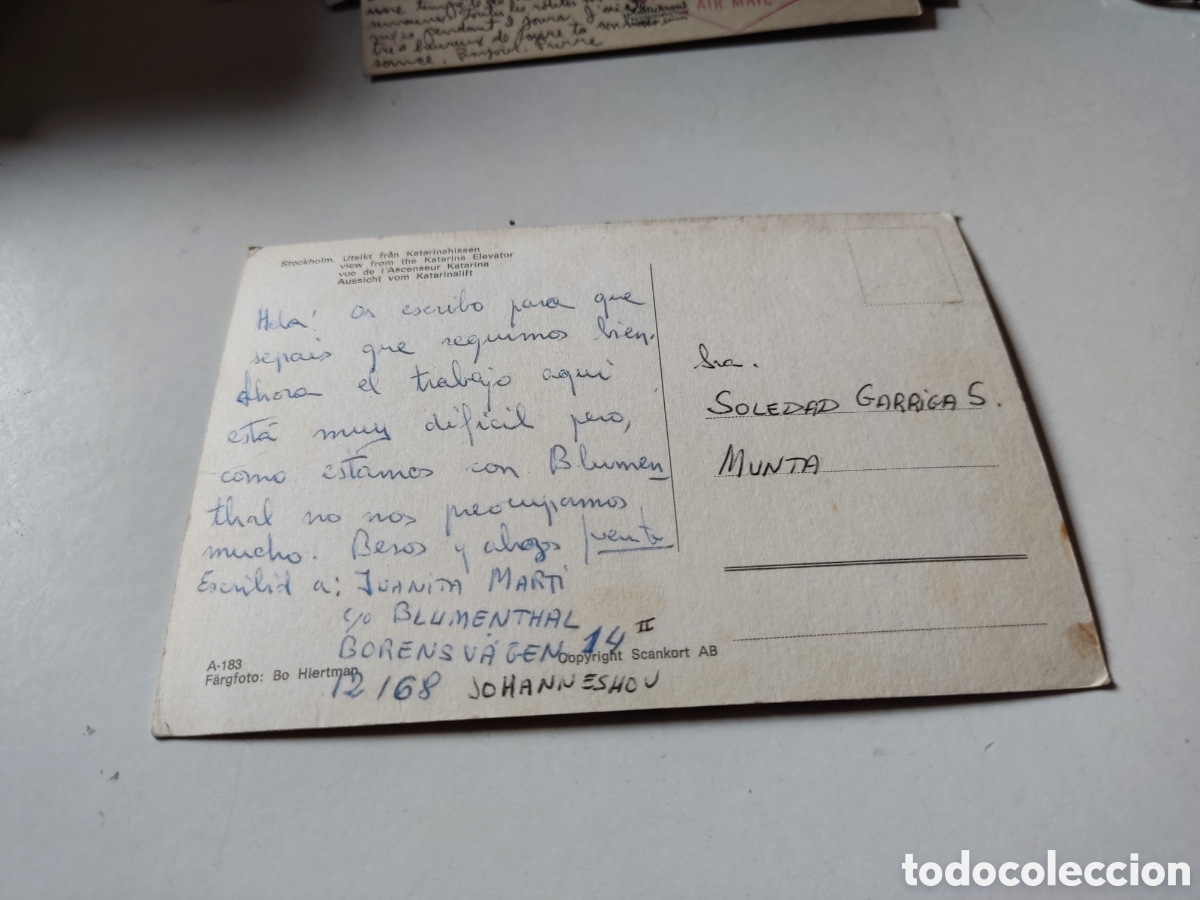 une temps
AIR MAIL
pendant 3 jours
très heureux de
Pierre
Stockholm. Utsikt från Katarinahissen
view from the Katarina Elevator
vue de l'Ascenseur Katarina
Aussicht vom Katarinalift
Hola! Os escribo para que
sepais que seguimos bien.
Ahora el trabajo aquí
está muy dificil pero,
como estamos con Blumen-
thal no nos preocupamos
mucho. Besos y
Escribid a: JUANITA MARTÍ
c/o BLUMENTHAL
BORENSVÄGEN 14 II
12168 JOHANNESHOV
A-183
Färgfoto: Bo Hiertman
Copyright Scankort AB
Sra.
SOLEDAD GARRIGA S.
MUNTA
todocoleccion